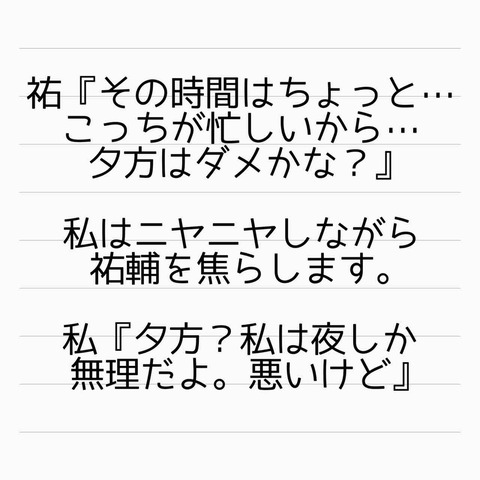 祐『その時間はちょっと…
こっちが忙しいから…
夕方はダメかな？』
私はニヤニヤしながら
祐輔を焦らします。
私『夕方？私は夜しか
無理だよ。悪いけど』